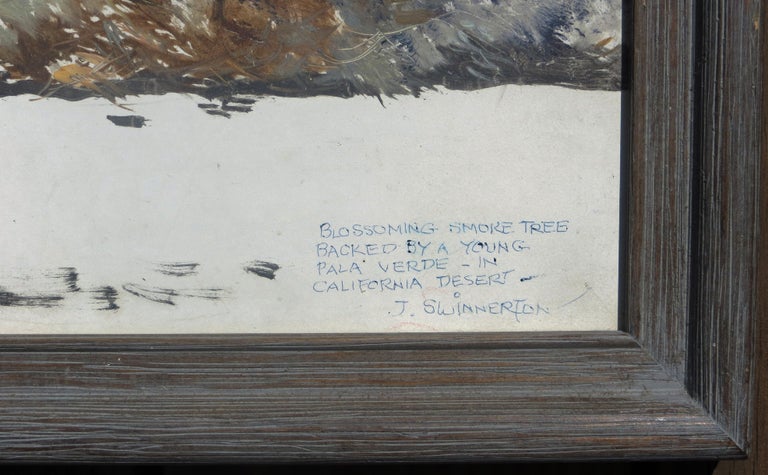 BLOSSOMING SMOKE TREE
BACKED BY A YOUNG
PALA VERDE - IN
CALIFORNIA DESERT -
J. SWINNERTON